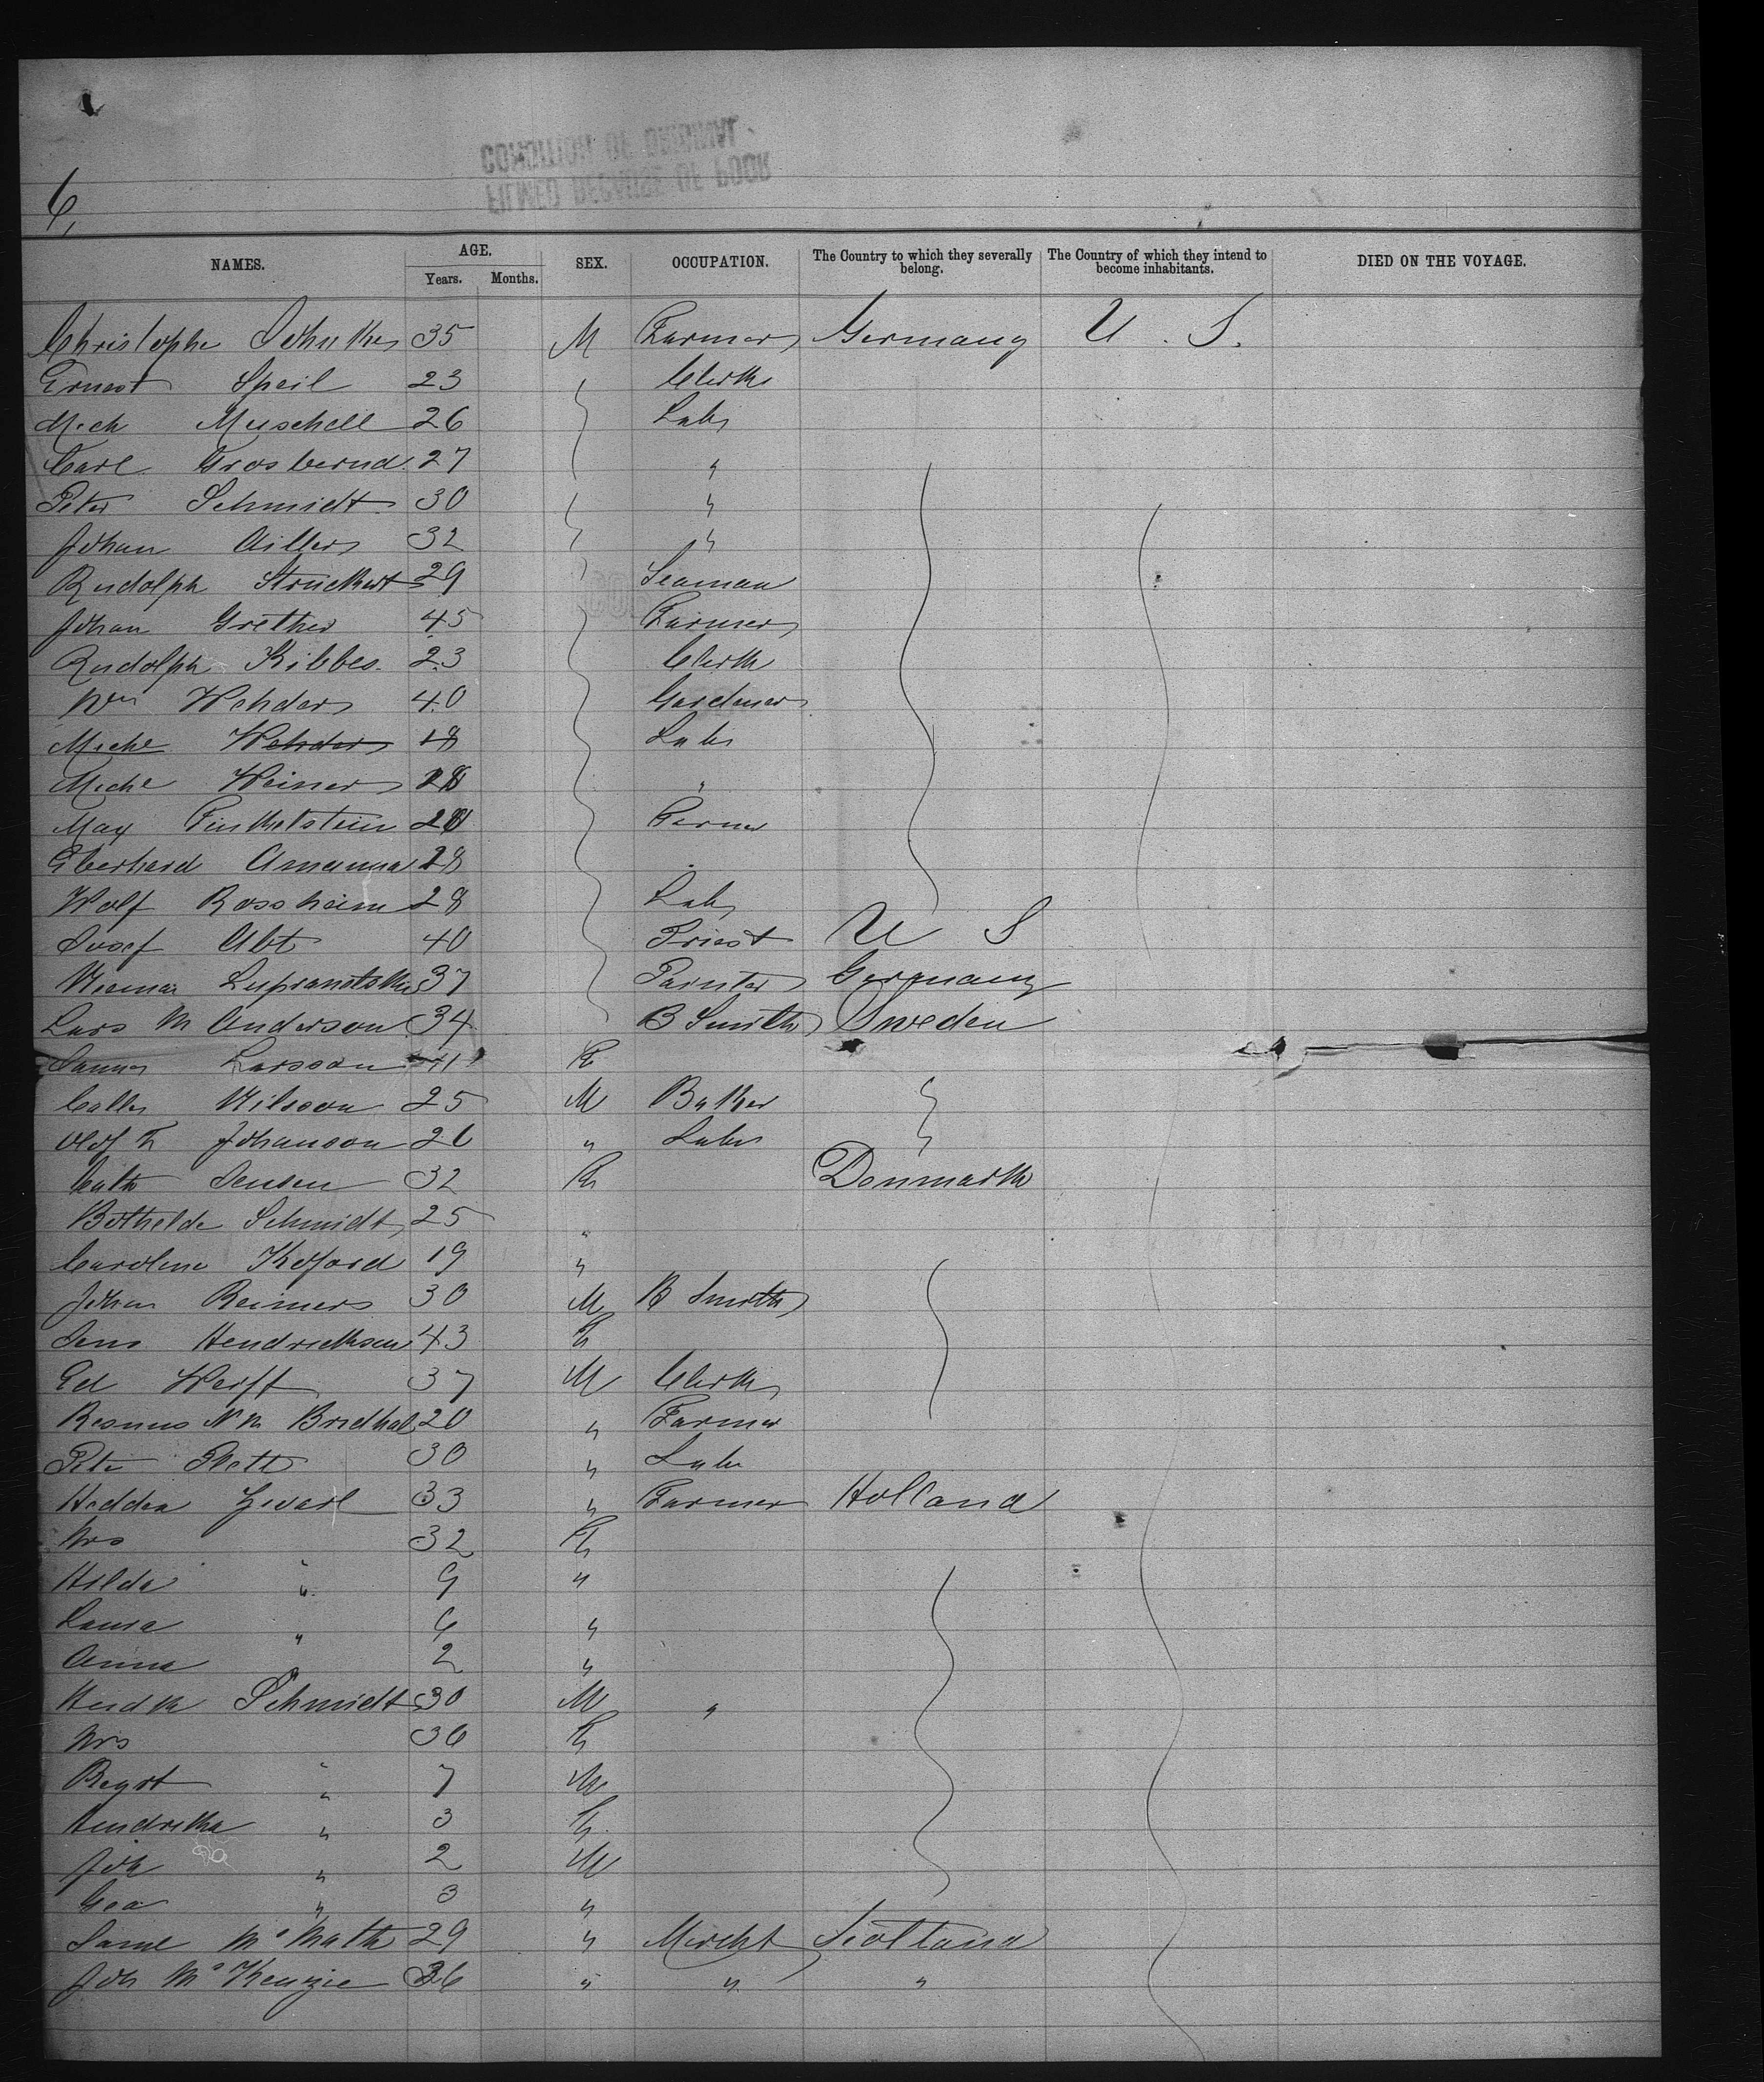 6,
NAMES. AGE. SEX. OCCUPATION. The Country to which they severally belong. The Country of which they intend to become inhabitants. DIED ON THE VOYAGE.
Years. Months.
Christophe 35 M Farmer Germany U. S.
Ernest Speil 23 Clerk
Mich Muschell 26 Labr
Carl Grosbernd 27 "
Peter Schmidt 30 "
Johan Aillers 32 "
Rudolph Struckert 29 Seaman
Johan Grether 45 Farmer
Rudolph Kibbes. 23 Clerk
Wm Wehders 40 Gardener
Michl Wehders 18 Labr
Michl Weiner 18 "
Max Finkelstein Farmer
Eberhard Amanna 28
Wolf Rossheim 28 Labr
Josef Abt 40 Priest U S
37 Painter Germany
Lars M Anderson 34 B Smith Sweden
Larsson 41 F
Nilsson 25 M Baker
Olof F Johanson 26 " Labr
Cath Jensen 32 F Denmark
Bothelde Schmidt 25 "
Caroline Koford 19 "
Johan Reimers 30 M B Smith
Jens Hendricksen 43 F
Ed Werff 37 M Clerk
20 " Farmer
Peter Plett 30 " Labr
33 " Farmer Holland
Mrs 32 F
Hilda " 9 "
Laura " 6 "
Anna 2 "
Schmidt 30 M "
Mrs 36 F
" 7 M
Hendrika " 3 F
Joh " 2 M
Gea " 3 "
Saml McMath 29 " Mercht Scotland
Joh McKenzie 36 " " "